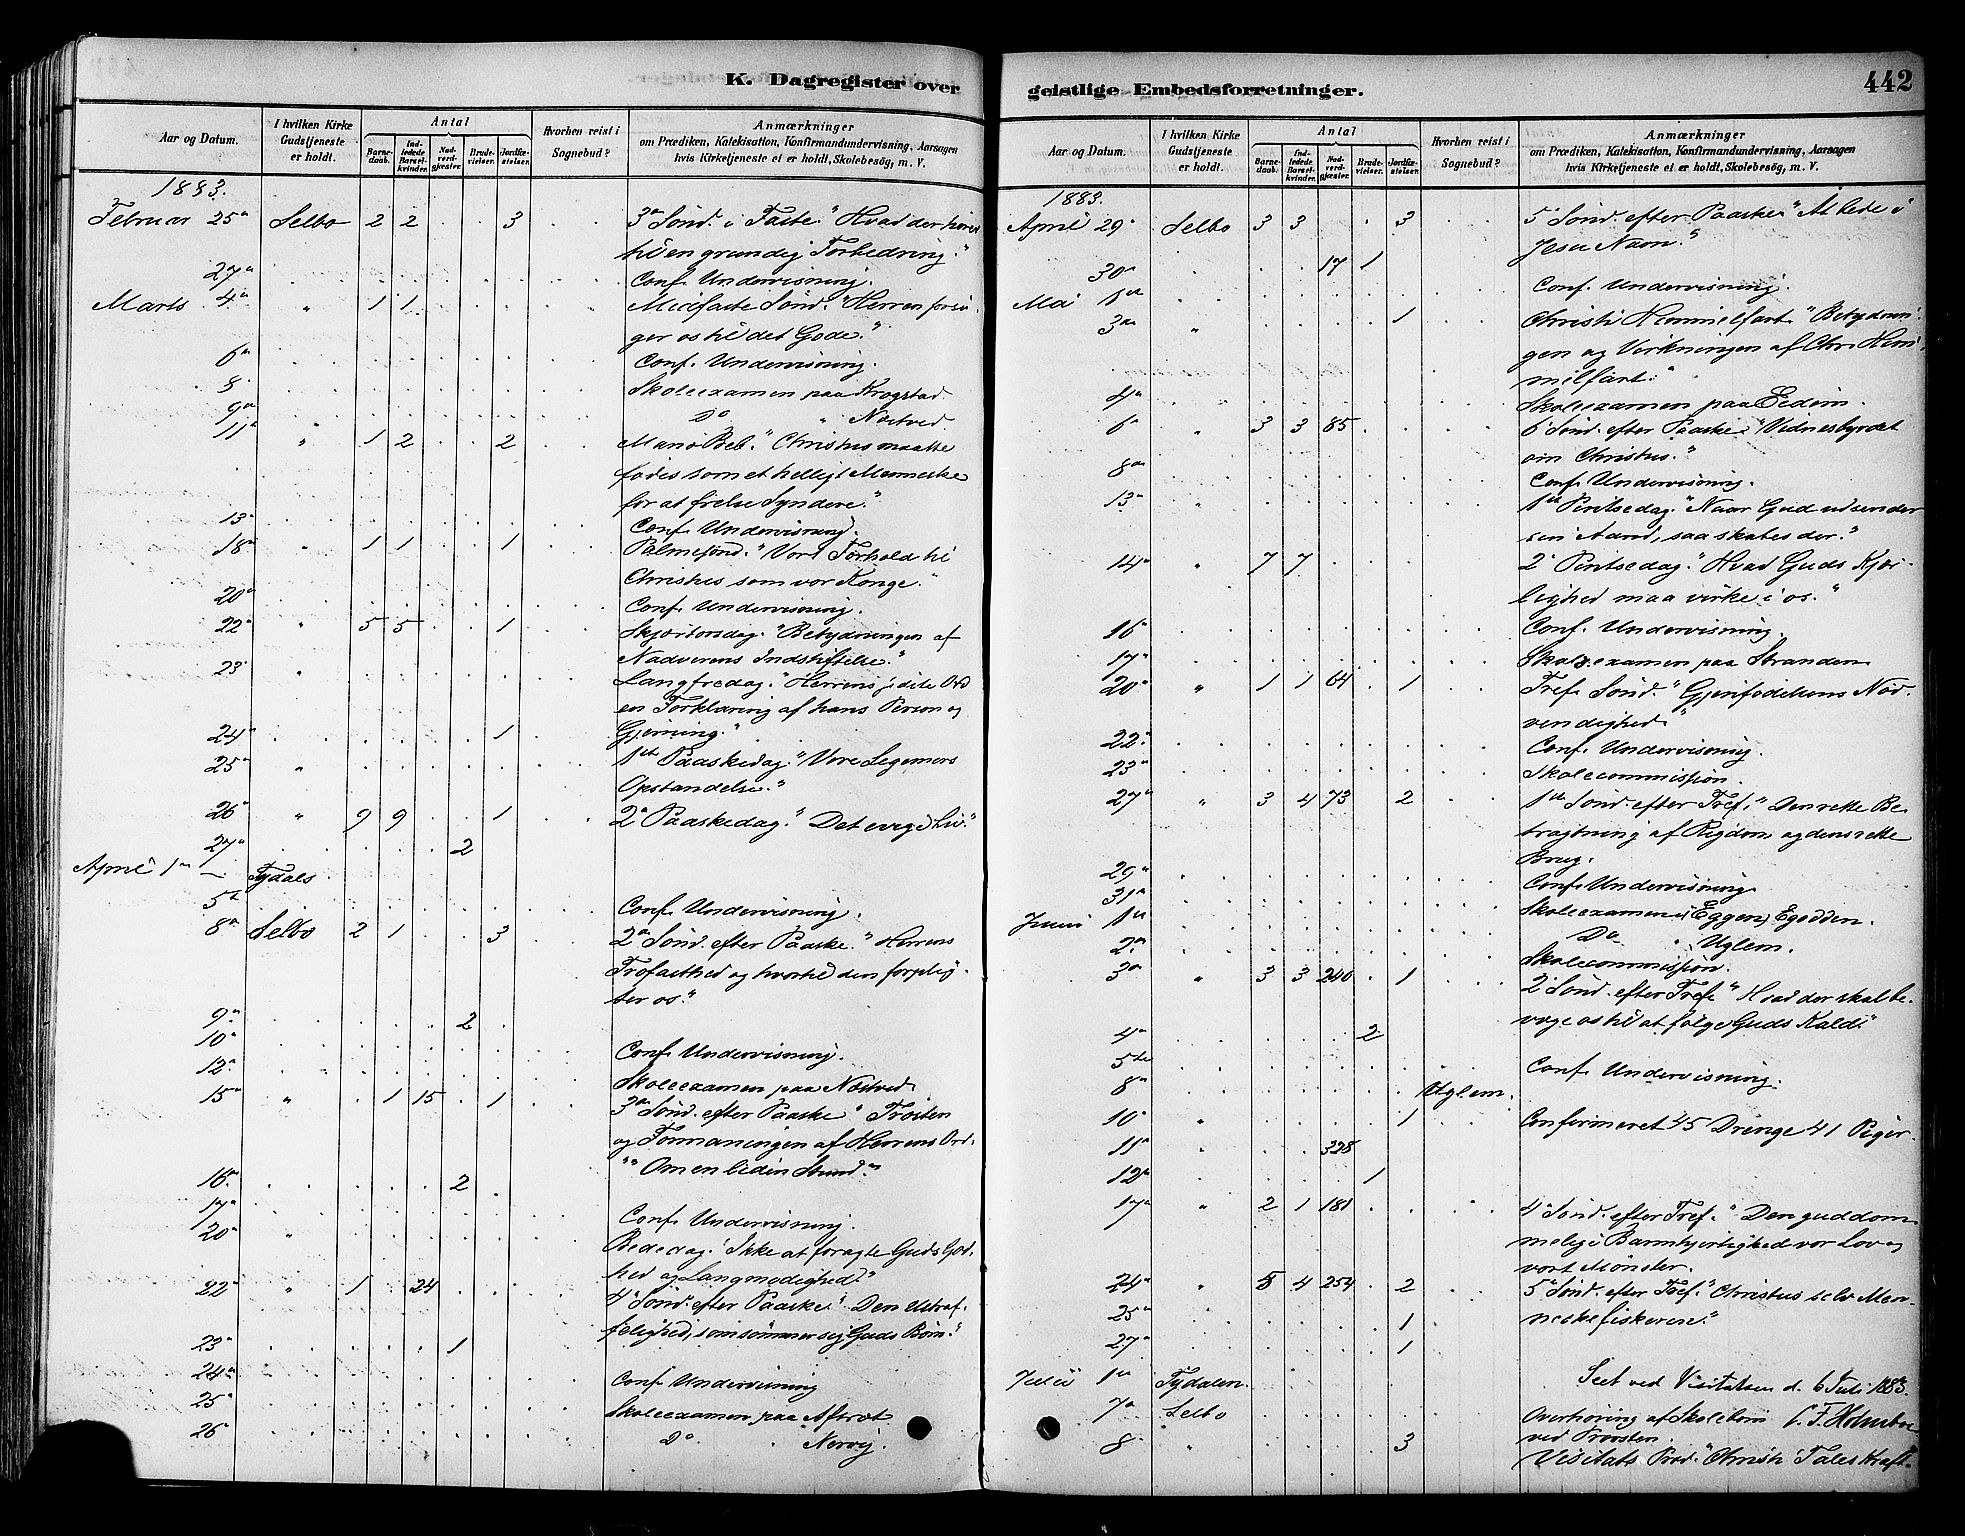 K. Dagregister over
Aar og Datum. I hvilken Kirke Gudstjeneste er holdt. Antal Barnedaab. Indledede Barselkvinder. Nadverdgjæster. Brudevielser. Jordfæstelsen Hvorhen reist i Sognebud? Anmærkninger om Prædiken, Katekisation, Konfirmandundervisning, Aarsagen hvis Kirketjeneste ei er holdt, Skolebesög, m. V.
1883.
Februar 25de Selbo 2 2 3 3de Sönd. i Faste. "Hvad der hører
til en grundig Forbedring."
27de Conf. Undervisning.
Marts 4de " 1 1 Midfaste Sönd. "Herren försö-
ger os til det Gode."
6te Conf. Undervisning.
8 Skoleexamen paa Krogstad
9de Do " Nestved
11te " 1 2 2 Mariæ Beb. "Christus maatte
fødes som et helligt Menneske
for at frelse Syndere."
13 Conf. Undervisning.
18de " 1 1 1 Palmesönd. "Vort Forhold til
Christus som vor Konge."
20de Conf. Undervisning.
22de " 5 5 1 Skjærtorsdag. "Betydningen af
Nadverens Indstiftelse."
23 " Langfredag. "Herrens sidste Ord
en Forklaring af hans Person og
Gjerning."
24de 1
25de " 1ste Paaskedag. "Vore Legemers
Opstandelse."
26de " 9 9 1 2den Paaskedag. "Det evige Liv."
27de 2
April 1ste – Tydals
5te Conf. Undervisning.
8de Selbo 2 1 3 2den Sönd. efter Paaske. "Herrens
Trofasthed og hvortil den forplig-
ter os."
9de 2
10de Conf. Undervisning.
12te Skoleexamen paa Nestved.
15de " 1 15 1 3de Sönd. efter Paaske "Trösten
og Formaningen af Herrens Ord:
"Om en liden Stund."
16de 2
17de Conf. Undervisning.
20de " Bededag. "Ikke at foragte Guds God-
hed og Langmodighed."
22de " 1 24 4de Sönd. efter Paaske. "Den Ustraf-
felighed, som sömmer sig Guds Börn."
23de 1
24de Conf. Undervisning
25de Skoleexamen paa Aftret
26 Do " Nervij.
geistlige Embedsforretninger. 442
Aar og Datum. I hvilken Kirke Gudstjeneste er holdt. Antal Barnedaab. Indledede Barselkvinder. Nadverdgjæster. Brudevielser. Jordfæstelsen Hvorhen reist i Sognebud? Anmærkninger om Prædiken, Katekisation, Konfirmandundervisning, Aarsagen hvis Kirketjeneste ei er holdt, Skolebesög, m. V.
1883.
April 29 Selbo 3 3 3 5 Sönd. efter Paaske "At bede i
Jesu Navn."
30de 17 1
Mai 1ste Conf. Undervisning.
3die " 1 Christi Himmelfart. "Betydnin-
gen og Virkningen af Chr. Him-
melfart."
4de Skoleexamen paa Eidem.
6te " 3 3 85 6 Sönd. efter Paaske. "Vidnesbyrdet
om Christus."
8de Conf. Undervisning.
13de " 1ste Pintsedag. "Naar Gud udsender
sin Aand, saa skabes der."
14de " 7 7 2 Pintsedag. "Hvad Guds Kjær-
lighed maa virke i os."
16de Conf. Undervisning.
17de Skoleexamen paa Stranden
20de " 1 1 64 1 Tref. Sönd. "Gjenfödelsens Nöd-
vendighed."
22de Conf. Undervisning.
23de Skolecommission.
27de " 3 4 73 2 1ste Sönd. efter Tref. "Den rette Be-
tragtning af Rigdom og dens rette
Brug.
29de Conf. Undervisning
31te Skoleexamen (Eggen) Egodden.
Juni 1ste Do " Uglem.
2den Skolecommission.
3die " 3 3 240 1 2 Sönd. efter Tref. "Hvad der skal be-
væge os til at følge Guds Kald."
4de 2
5te Conf. Undervisning.
8de Uglem.
10de " 1 Confirmeret 45 Drenge 41 Piger.
11te 328
12te 1
17de " 2 1 181 4 Sönd. efter Tref. "Den guddom-
melige Barmhjertighed vor Lov og
vort Mönster.
24de " 5 4 254 2 5te Sönd. efter Tref. "Christus selv Men-
neskefiskeren."
25de 1
27de 1
Juli 1ste Tydalen. Seet ved Visitatsen d. 6 Juli 1883.
7de Selbo Overhöring af Skolebörn C. F.
ved Provsten.
8 " 3 Visitats Præd. "Christi Tales Kraft